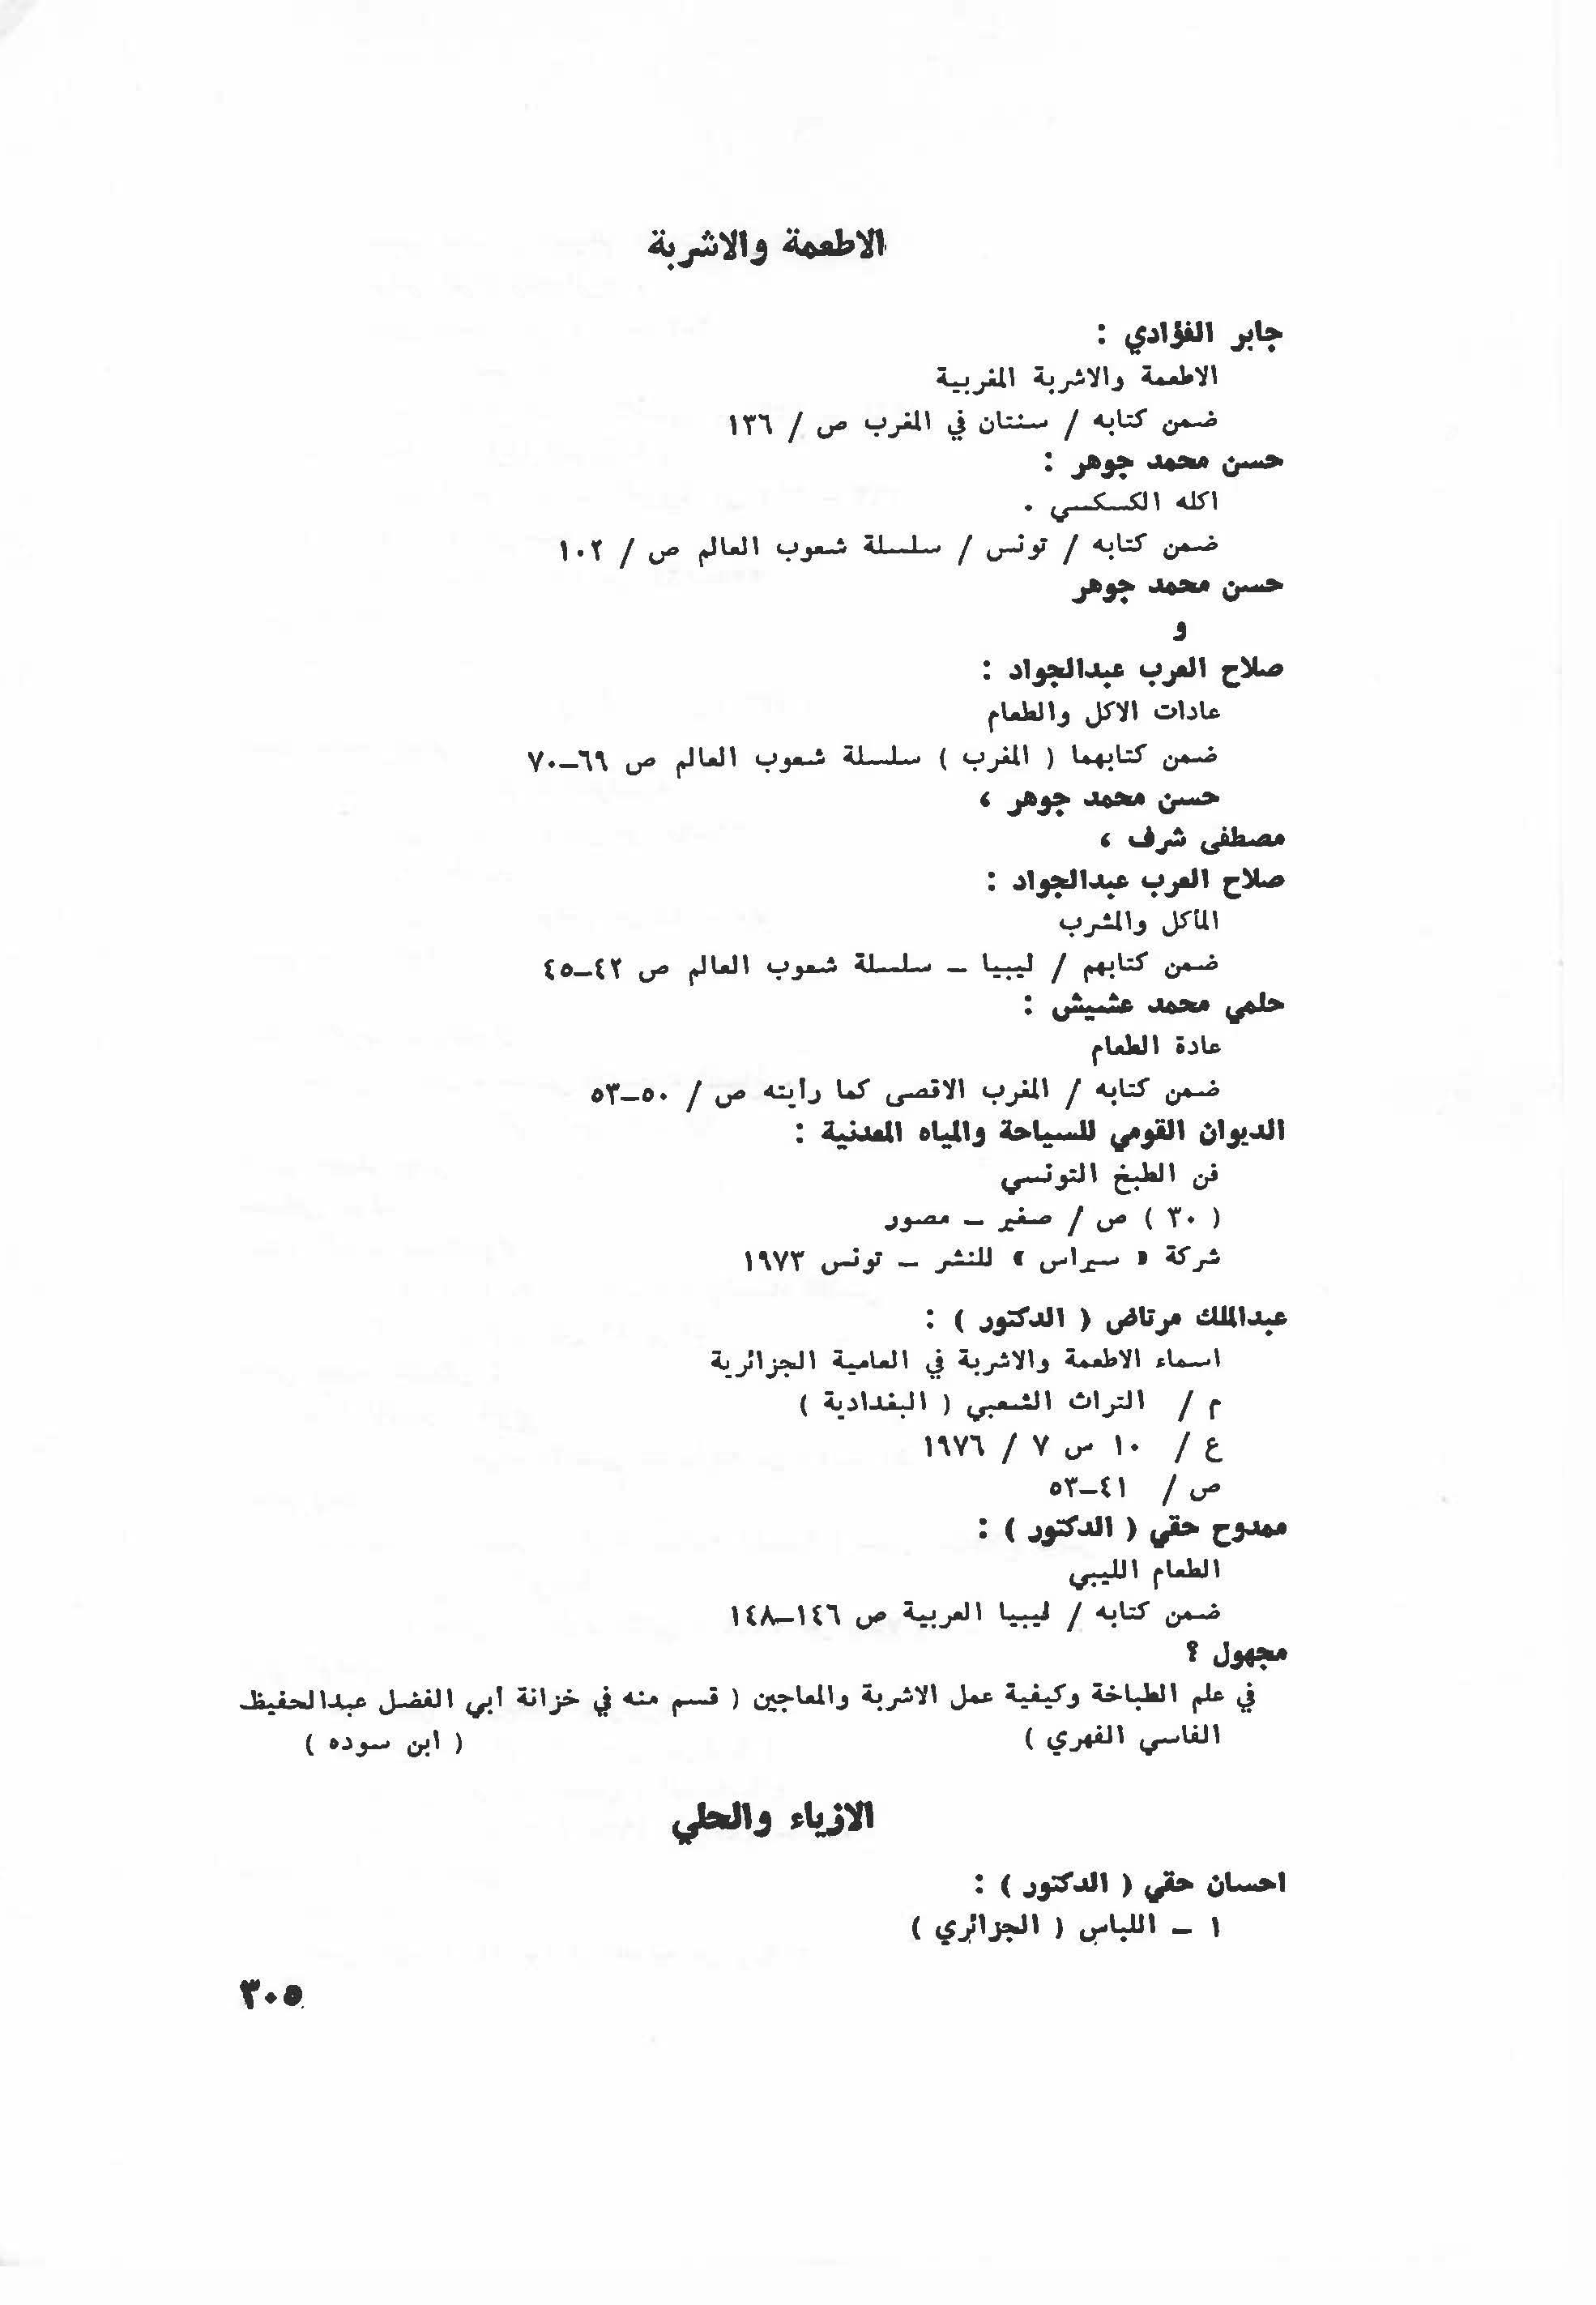 الاطعمة والاشربة
جابر الفؤادي :
الاطعمة والاشربة المغربية
ضمن كتابه / سنتان في المغرب ص / ١٣٦
حسن محمد جوهر :
اكله الكسكسي .
ضمن كتابه / تونس / سلسلة شعوب العالم ص / ١٠٢
حسن محمد جوهر
و
صلاح العرب عبدالجواد :
عادات الاكل والطعام
ضمن كتابهما ( المغرب ) سلسلة شعوب العالم ص ٦٩–٧٠
حسن محمد جوهر ،
مصطفى شرف ،
صلاح العرب عبدالجواد :
المأكل والمشرب
ضمن كتابهم / ليبيا – سلسلة شعوب العالم ص ٤٢–٤٥
حلمي محمد عشيش :
عادة الطعام
ضمن كتابه / المغرب الاقصى كما رأيته ص / ٥٠–٥٣
الديوان القومي للسياحة والمياه المعدنية :
فن الطبخ التونسي
( ٣٠ ) ص / صغير – مصور
شركة « سيراس » للنشر – تونس ١٩٧٣
عبدالملك مرتاض ( الدكتور ) :
اسماء الاطعمة والاشربة في العامية الجزائرية
م / التراث الشعبي ( البغدادية )
ع / ١٠ س ٧ / ١٩٧٦
ص / ٤١–٥٣
ممدوح حقي ( الدكتور ) :
الطعام الليبي
ضمن كتابه / ليبيا العربية ص ١٤٦–١٤٨
مجهول ؟
في علم الطباخة وكيفية عمل الاشربة والمعاجين ( قسم منه في خزانة أبي الفضل عبدالحفيظ
الفاسي الفهري ) ( ابن سوده )
الازياء والحلي
احسان حقي ( الدكتور ) :
١ – اللباس ( الجزائري )
٣٠٥